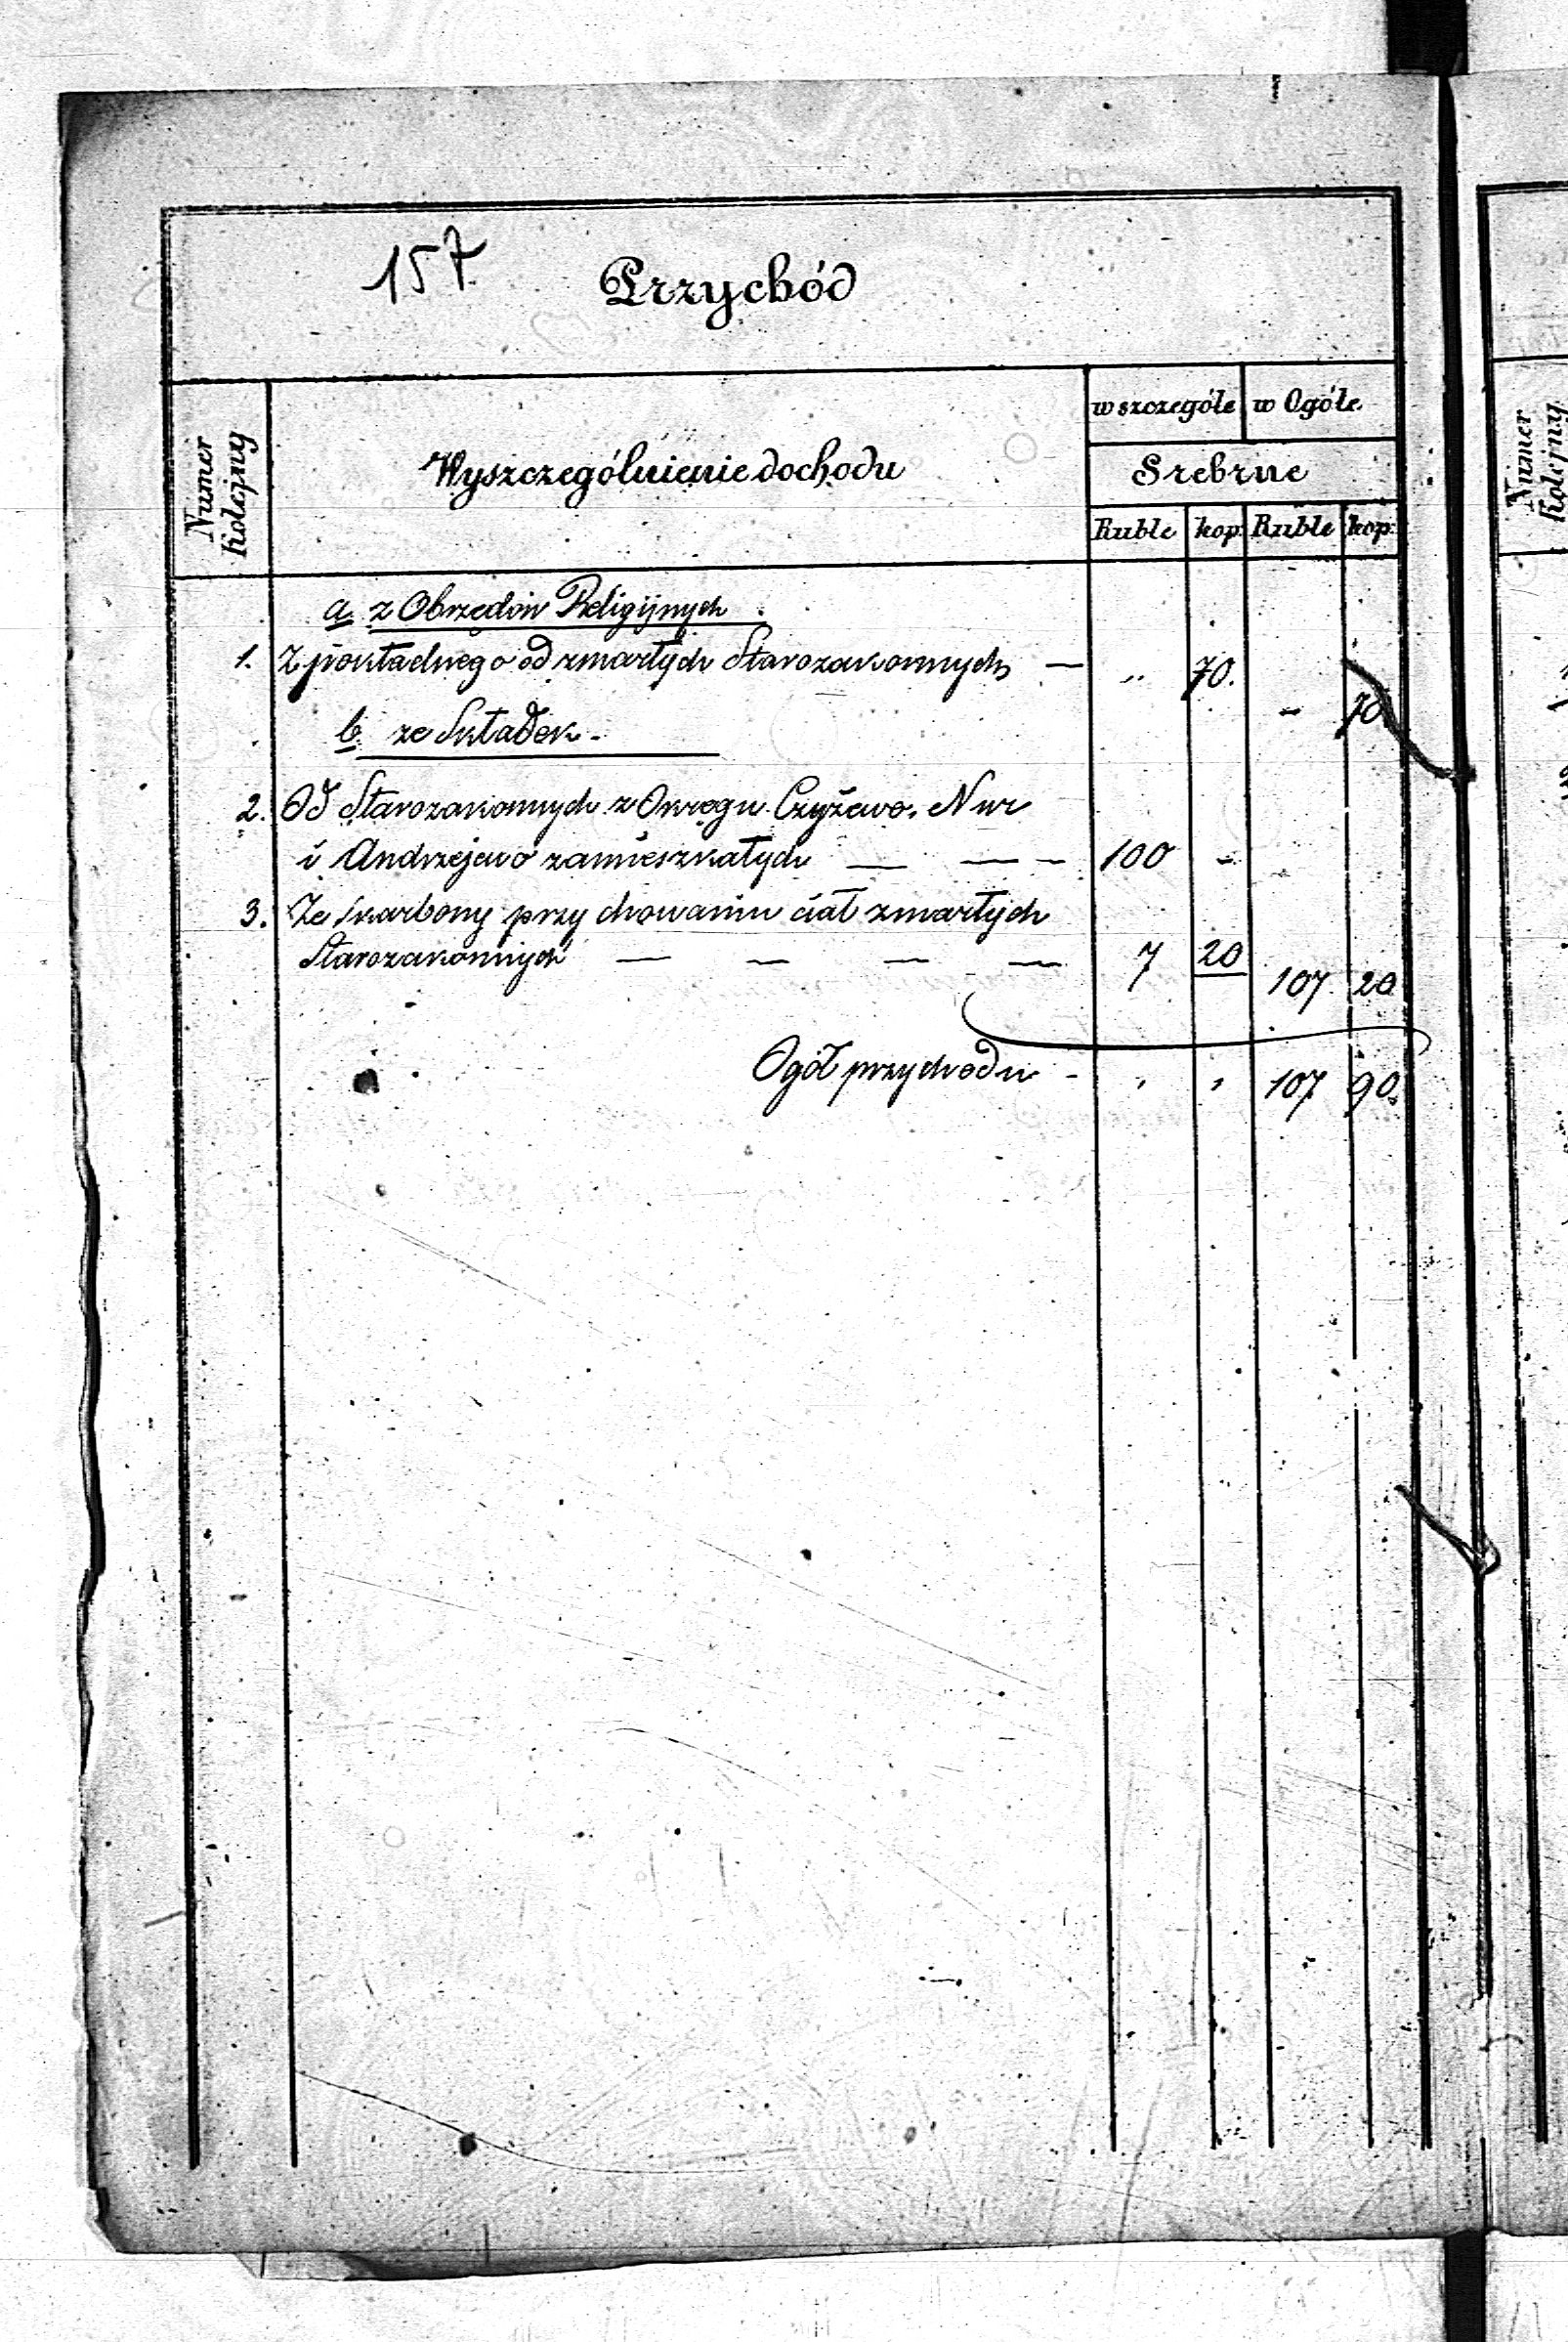 157.
Przychód
Numer Kolejny
Wyszczególnienie dochodu
w szczególe w Ogóle.
Srebrne
Ruble kop. Ruble kop.
a z Obrzędów Religijnych.
1. Z pokładnego od zmarłych Starozakonnych — " 70.
- 70
b ze Składek -
2. Od Starozakonnych z Okręgu Czyżewo, Nur
i Andrzejewo zamieszkałych — — - 100 -
3. Ze skarbony przy chowaniu ciał zmarłych
Starozakonnych — — — — 7 20 107 20
Ogół przychodu - " " 107 90.
Numer Kolejny